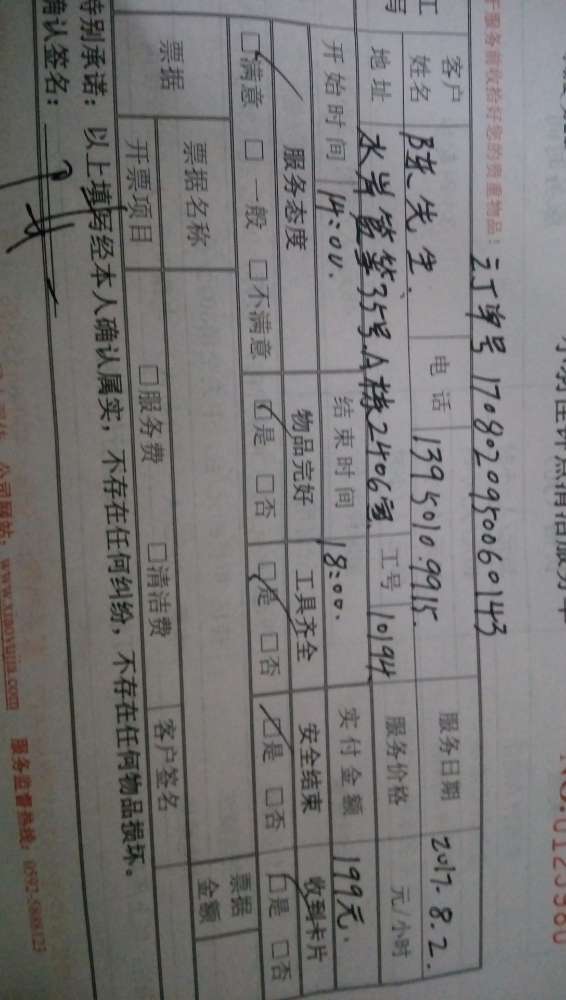 于服务前收拾好您的贵重物品！订单号 1708020950060143
客户姓名 陈先生. 电话 13950109915. 服务日期 2017.8.2.
地址 水岸 35号.A栋2406室 工号 10194 服务价格 元/小时
开始时间 14:00. 结束时间 18:00. 实付金额 199元.
服务态度 物品完好 工具齐全 安全结束 收到卡片
□满意 □一般 □不满意 □是 □否 □是 □否 □是 □否 □是 □否
票据 票据名称 票据金额
开票项目 □服务费 □清洁费 客户签名
特别承诺：以上填写经本人确认属实，不存在任何纠纷，不存在任何物品损坏。
确认签名：
公司网站：www.xiaoyujia.com 服务监督热线：0592-5888123